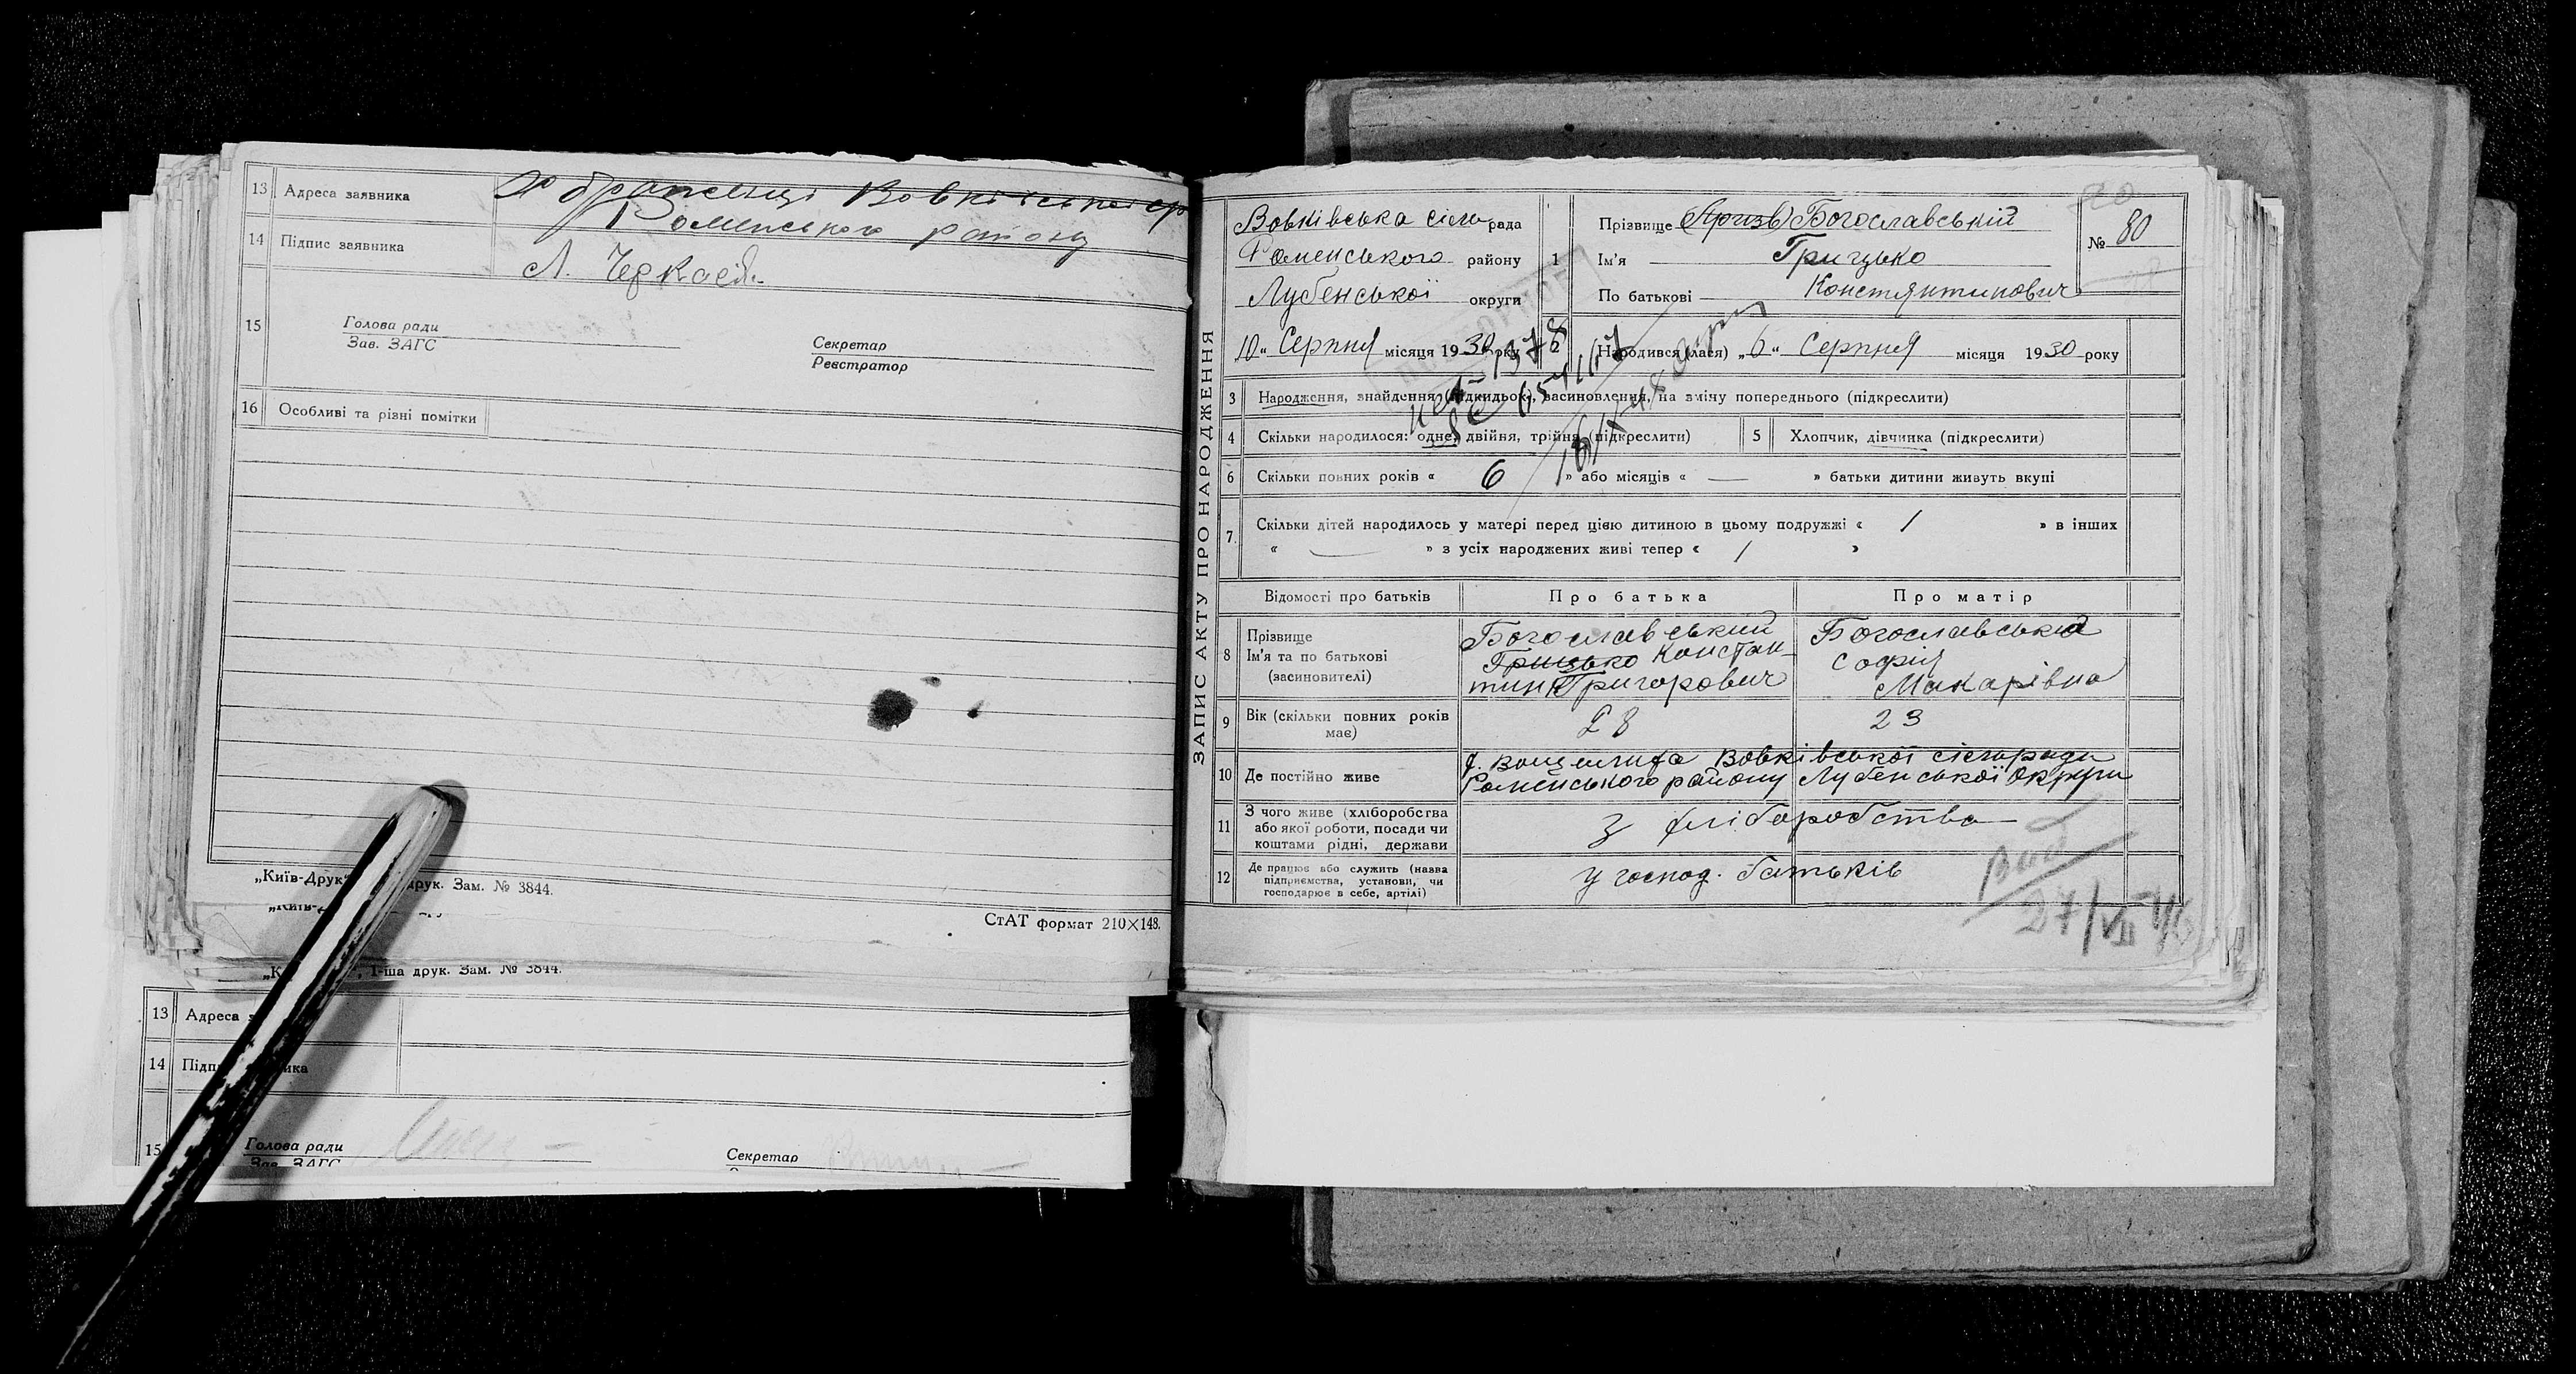 13 Адреса заявника Х Ображенці Вовківської ср
Роменського району
14 Підпис заявника
Л. Черкасія
15
Голова ради
Зав. ЗАГС
Секретар
Реєстратор
16 Особливі та різні помітки
„Київ-Друк" друк. Зам. № 3844.
СтАТ формат 210×148.
1-ша друк. Зам. № 3844.
13 Адреса
14
15
Голова ради
Зав. ЗАГС
Секретар
ЗАПИС АКТУ ПРО НАРОДЖЕННЯ
Вовківська сільрада
Роменського району
Лубенської округи
10 „ Серпня місяця 1930 року
1 Прізвище Богославській
Ім'я Грицько
По батькові Констянтинович
№ 80
2 Народився (лася) „ 6 " Серпня місяця 1930 року
3 Народження, знайдення (підкидьок), засиновлення, на зміну попереднього (підкреслити)
4 Скільки народилося: одне, двійня, трійня (підкреслити)
5 Хлопчик, дівчинка (підкреслити)
6 Скільки повних років « 6 » або місяців « — » батьки дитини живуть вкупі
7 Скільки дітей народилось у матері перед цією дитиною в цьому подружжі « 1 » в інших
« — » з усіх народжених живі тепер « 1 »
Відомості про батьків Про батька Про матір
8 Прізвище
Ім'я та по батькові
(засиновителі)
Богославський
Грицько Констан-
тин Григорович
Богославська
Софія
Макарівна
9 Вік (скільки повних років має) 28 23
10 Де постійно живе
Вовківської сільради
Роменського району Лубенської Округи
11 З чого живе (хліборобства
або якої роботи, посади чи
коштами рідні, держави
З хліборобства
12 Де працює або служить (назва
підприємства, установи, чи
господарює в себе, артілі)
У господ. батьків
27/VII 46